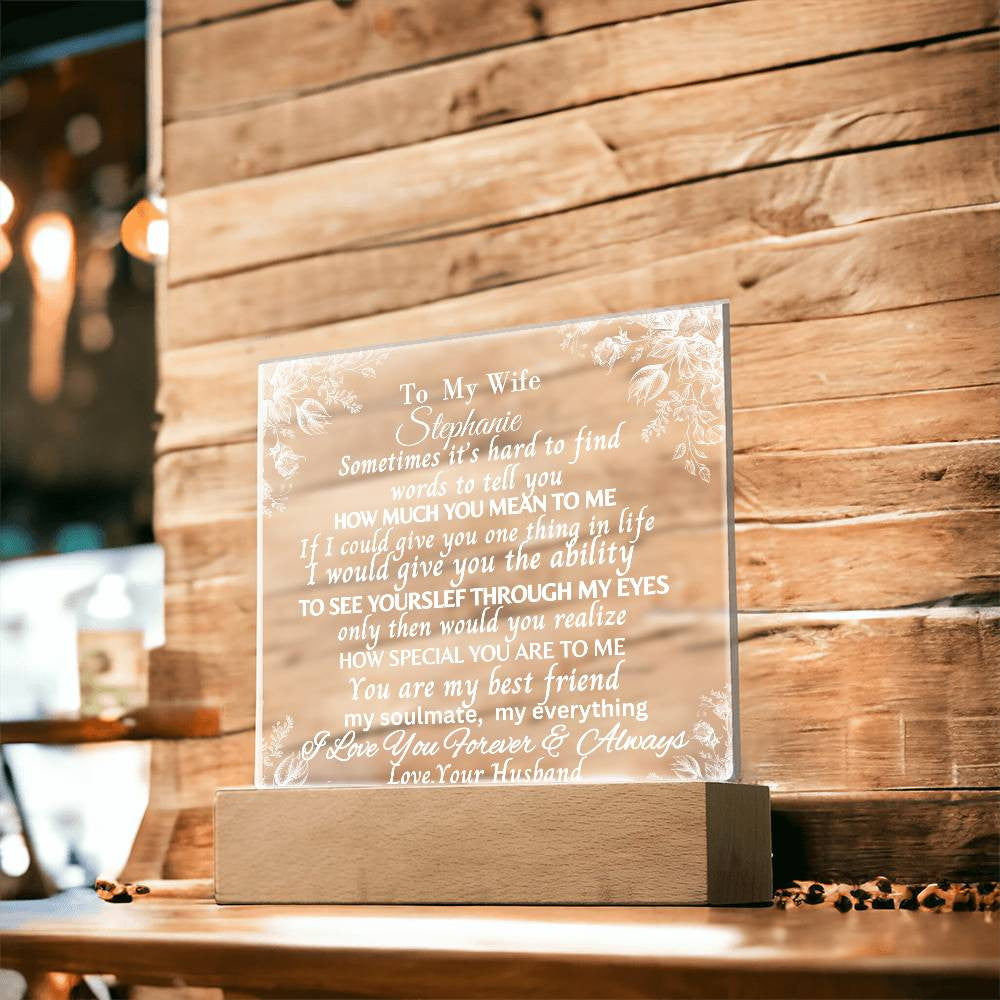 To My Wife
Stephanie
Sometimes it's hard to find
words to tell you
HOW MUCH YOU MEAN TO ME
If I could give you one thing in life
I would give you the ability
TO SEE YOURSLEF THROUGH MY EYES
only then would you realize
HOW SPECIAL YOU ARE TO ME
You are my best friend
my soulmate, my everything
I Love You Forever & Always
Love,Your Husband